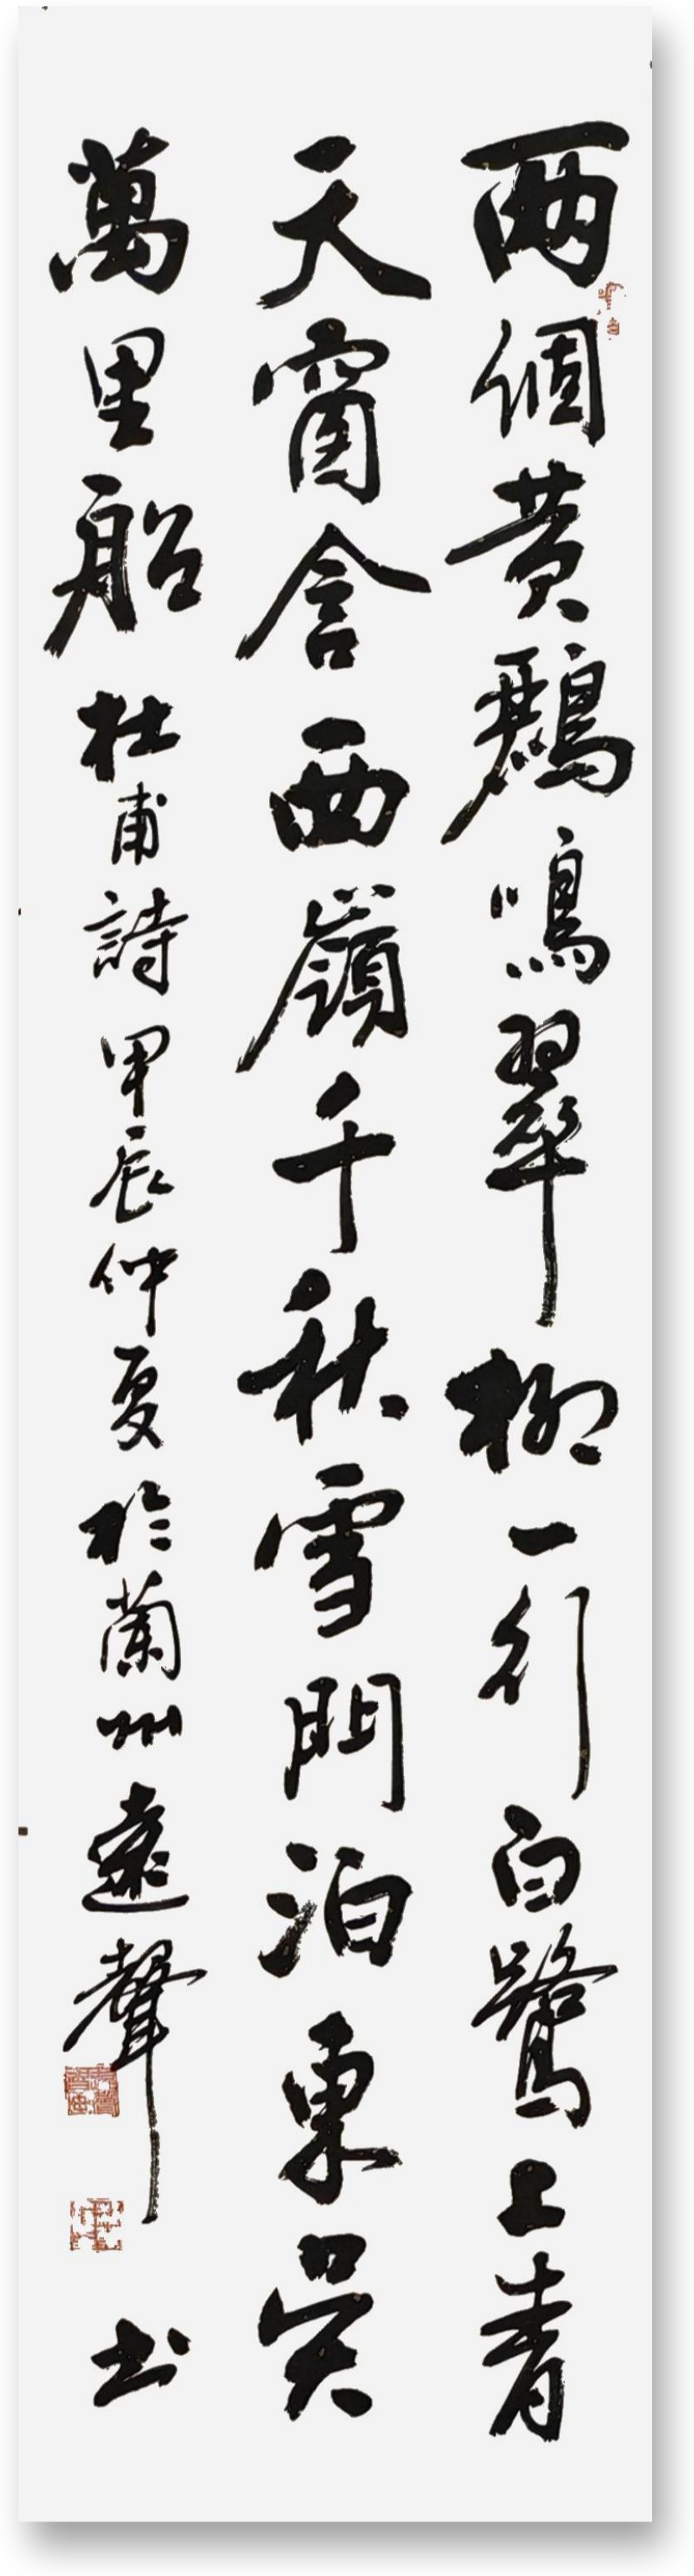 两個黄鸝鳴翠柳一行白鷺上青
天窗含西嶺千秋雪門泊東吳
萬里船 杜甫詩 甲辰仲夏於蘭州遠聲书